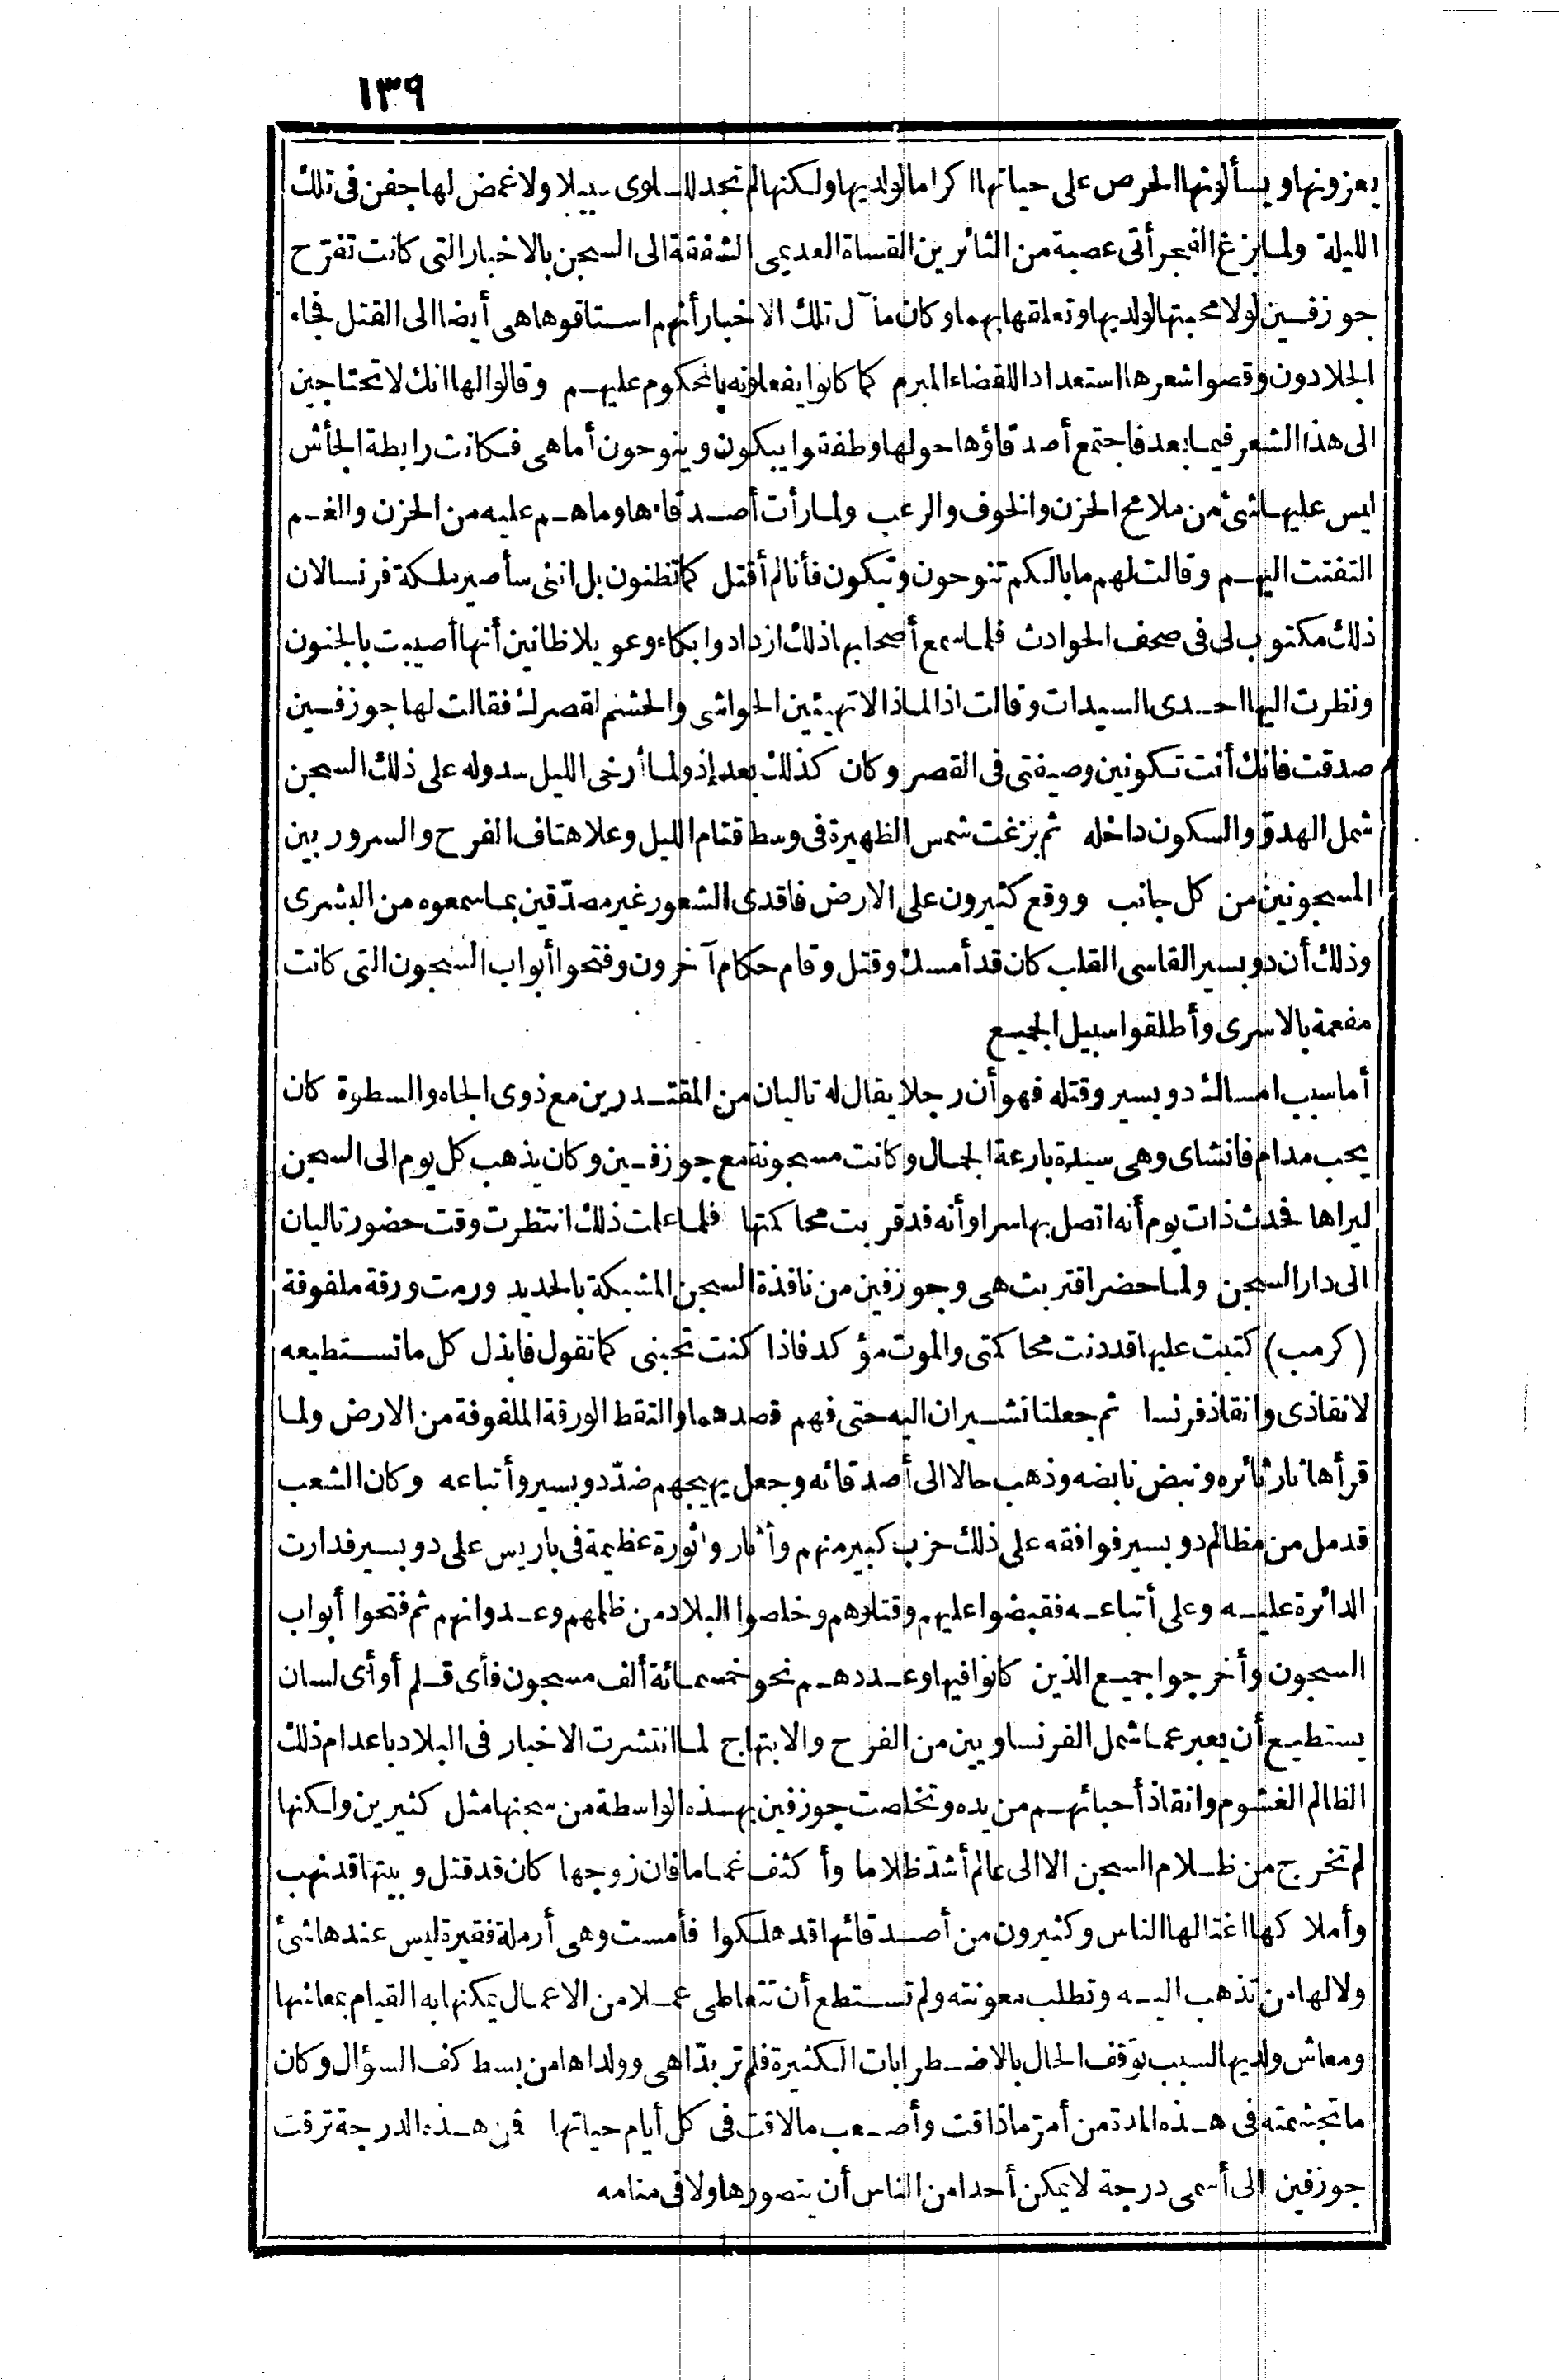 ١٣٩
يعزونها ويسألونها الحرص على حياتها اكراما لولديها ولكنها لم تجد للسلوى سبيلا ولا غمض لها جفن فى تلك
الليلة ولما بزغ الفجر أتى عصبة من الثائرين القساة العديمى الشفقة الى السجن بالاخبار التى كانت تفرح
جوزفين لولا محبتها لولديها وتعلقها بهما وكان مآل تلك الاخبار أنهم استاقوها هى أيضا الى القتل فجاء
الجلادون وقصوا شعرها استعدادا للقضاء المبرم كما كانوا يفعلونه بالمحكوم عليهم وقالوا لها انك لا تحتاجين
الى هذا الشعر فيما بعد فاجتمع أصدقاؤها حولها وطفقوا يبكون وينوحون أما هى فكانت رابطة الجأش
ليس عليها شئ من ملامح الحزن والخوف والرعب ولما رأت أصدقاءها وما هم عليه من الحزن والغم
التفتت اليهم وقالت لهم ما بالكم تنوحون وتبكون فأنا لم أقتل كما تظنون بل اننى سأصير ملكة فرنسا لان
ذلك مكتوب لى فى صحف الحوادث فلما سمع أصحابها ذلك ازدادوا بكاء وعويلا ظانين أنها أصيبت بالجنون
ونظرت اليها احدى السيدات وقالت اذا لماذا لا تهيئين الحواشى والحشم لقصرك فقالت لها جوزفين
صدقت فانك أنت تكونين وصيفتى فى القصر وكان كذلك بعد إذ ولما أرخى الليل سدوله على ذلك السجن
شمل الهدوّ والسكون داخله ثم بزغت شمس الظهيرة فى وسط قتام الليل وعلا هتاف الفرح والسرور بين
المسجونين من كل جانب ووقع كثيرون على الارض فاقدى الشعور غير مصدّقين بما سمعوه من البشرى
وذلك أن دوبسير القاسى القلب كان قد أمسك وقتل وقام حكام آخرون وفتحوا أبواب السجون التى كانت
مفعمة بالاسرى وأطلقوا سبيل الجميع
أما سبب امساك دوبسير وقتله فهو أن رجلا يقال له تاليان من المقتدرين مع ذوى الجاه والسطوة كان
يحب مدام فانشاى وهى سيدة بارعة الجمال وكانت مسجونة مع جوزفين وكان يذهب كل يوم الى السجن
ليراها فحدث ذات يوم أنه اتصل بها سرا وأنه قد قربت محاكمتها فلما علمت ذلك انتظرت وقت حضور تاليان
الى دار السجن ولما حضر اقتربت هى وجوزفين من نافذة السجن المشبكة بالحديد ورمت ورقة ملفوفة
(كرمب) كتبت عليها قد دنت محاكمتى والموت مؤكد فاذا كنت تحبنى كما تقول فابذل كل ما تستطيعه
لانقاذى وانقاذ فرنسا ثم جعلتا تشيران اليه حتى فهم قصدهما والتقط الورقة الملفوفة من الارض ولما
قرأها ثار ثائره ونبض نابضه وذهب حالا الى أصدقائه وجعل يهيجهم ضدّ دوبسير وأتباعه وكان الشعب
قد مل من مظالم دوبسير فوافقه على ذلك حزب كبير منهم وأثاروا ثورة عظيمة فى باريس على دوبسير فدارت
الدائرة عليه وعلى أتباعه فقبضوا عليهم وقتلوهم وخلصوا البلاد من ظلمهم وعدوانهم ثم فتحوا أبواب
السجون وأخرجوا جميع الذين كانوا فيها وعددهم نحو خمسمائة ألف مسجون فأى قلم أو أى لسان
يستطيع أن يعبر عما شمل الفرنساويين من الفرح والابتهاج لما انتشرت الاخبار فى البلاد باعدام ذلك
الظالم الغشوم وانقاذ أحبائهم من يده وتخلصت جوزفين بهذه الواسطة من سجنها مثل كثيرين ولكنها
لم تخرج من ظلام السجن الا الى عالم أشدّ ظلاما وأكثف غماما فان زوجها كان قد قتل وبيتها قد نهب
وأملاكها اغتالها الناس وكثيرون من أصدقائها قد هلكوا فأمست وهى أرملة فقيرة ليس عندها شئ
ولا لها من تذهب اليه وتطلب معونته ولم تستطع أن تتعاطى عملا من الاعمال يمكنها به القيام بمعاشها
ومعاش ولديها لسبب توقف الحال بالاضطرابات الكثيرة فلم تر بدّا هى وولداها من بسط كف السؤال وكان
ما تجشمته فى هذه المدة من أمرّ ما ذاقت وأصعب ما لاقت فى كل أيام حياتها فمن هذه الدرجة ترقت
جوزفين الى أسمى درجة لا يمكن أحدا من الناس أن يتصورها ولا فى منامه